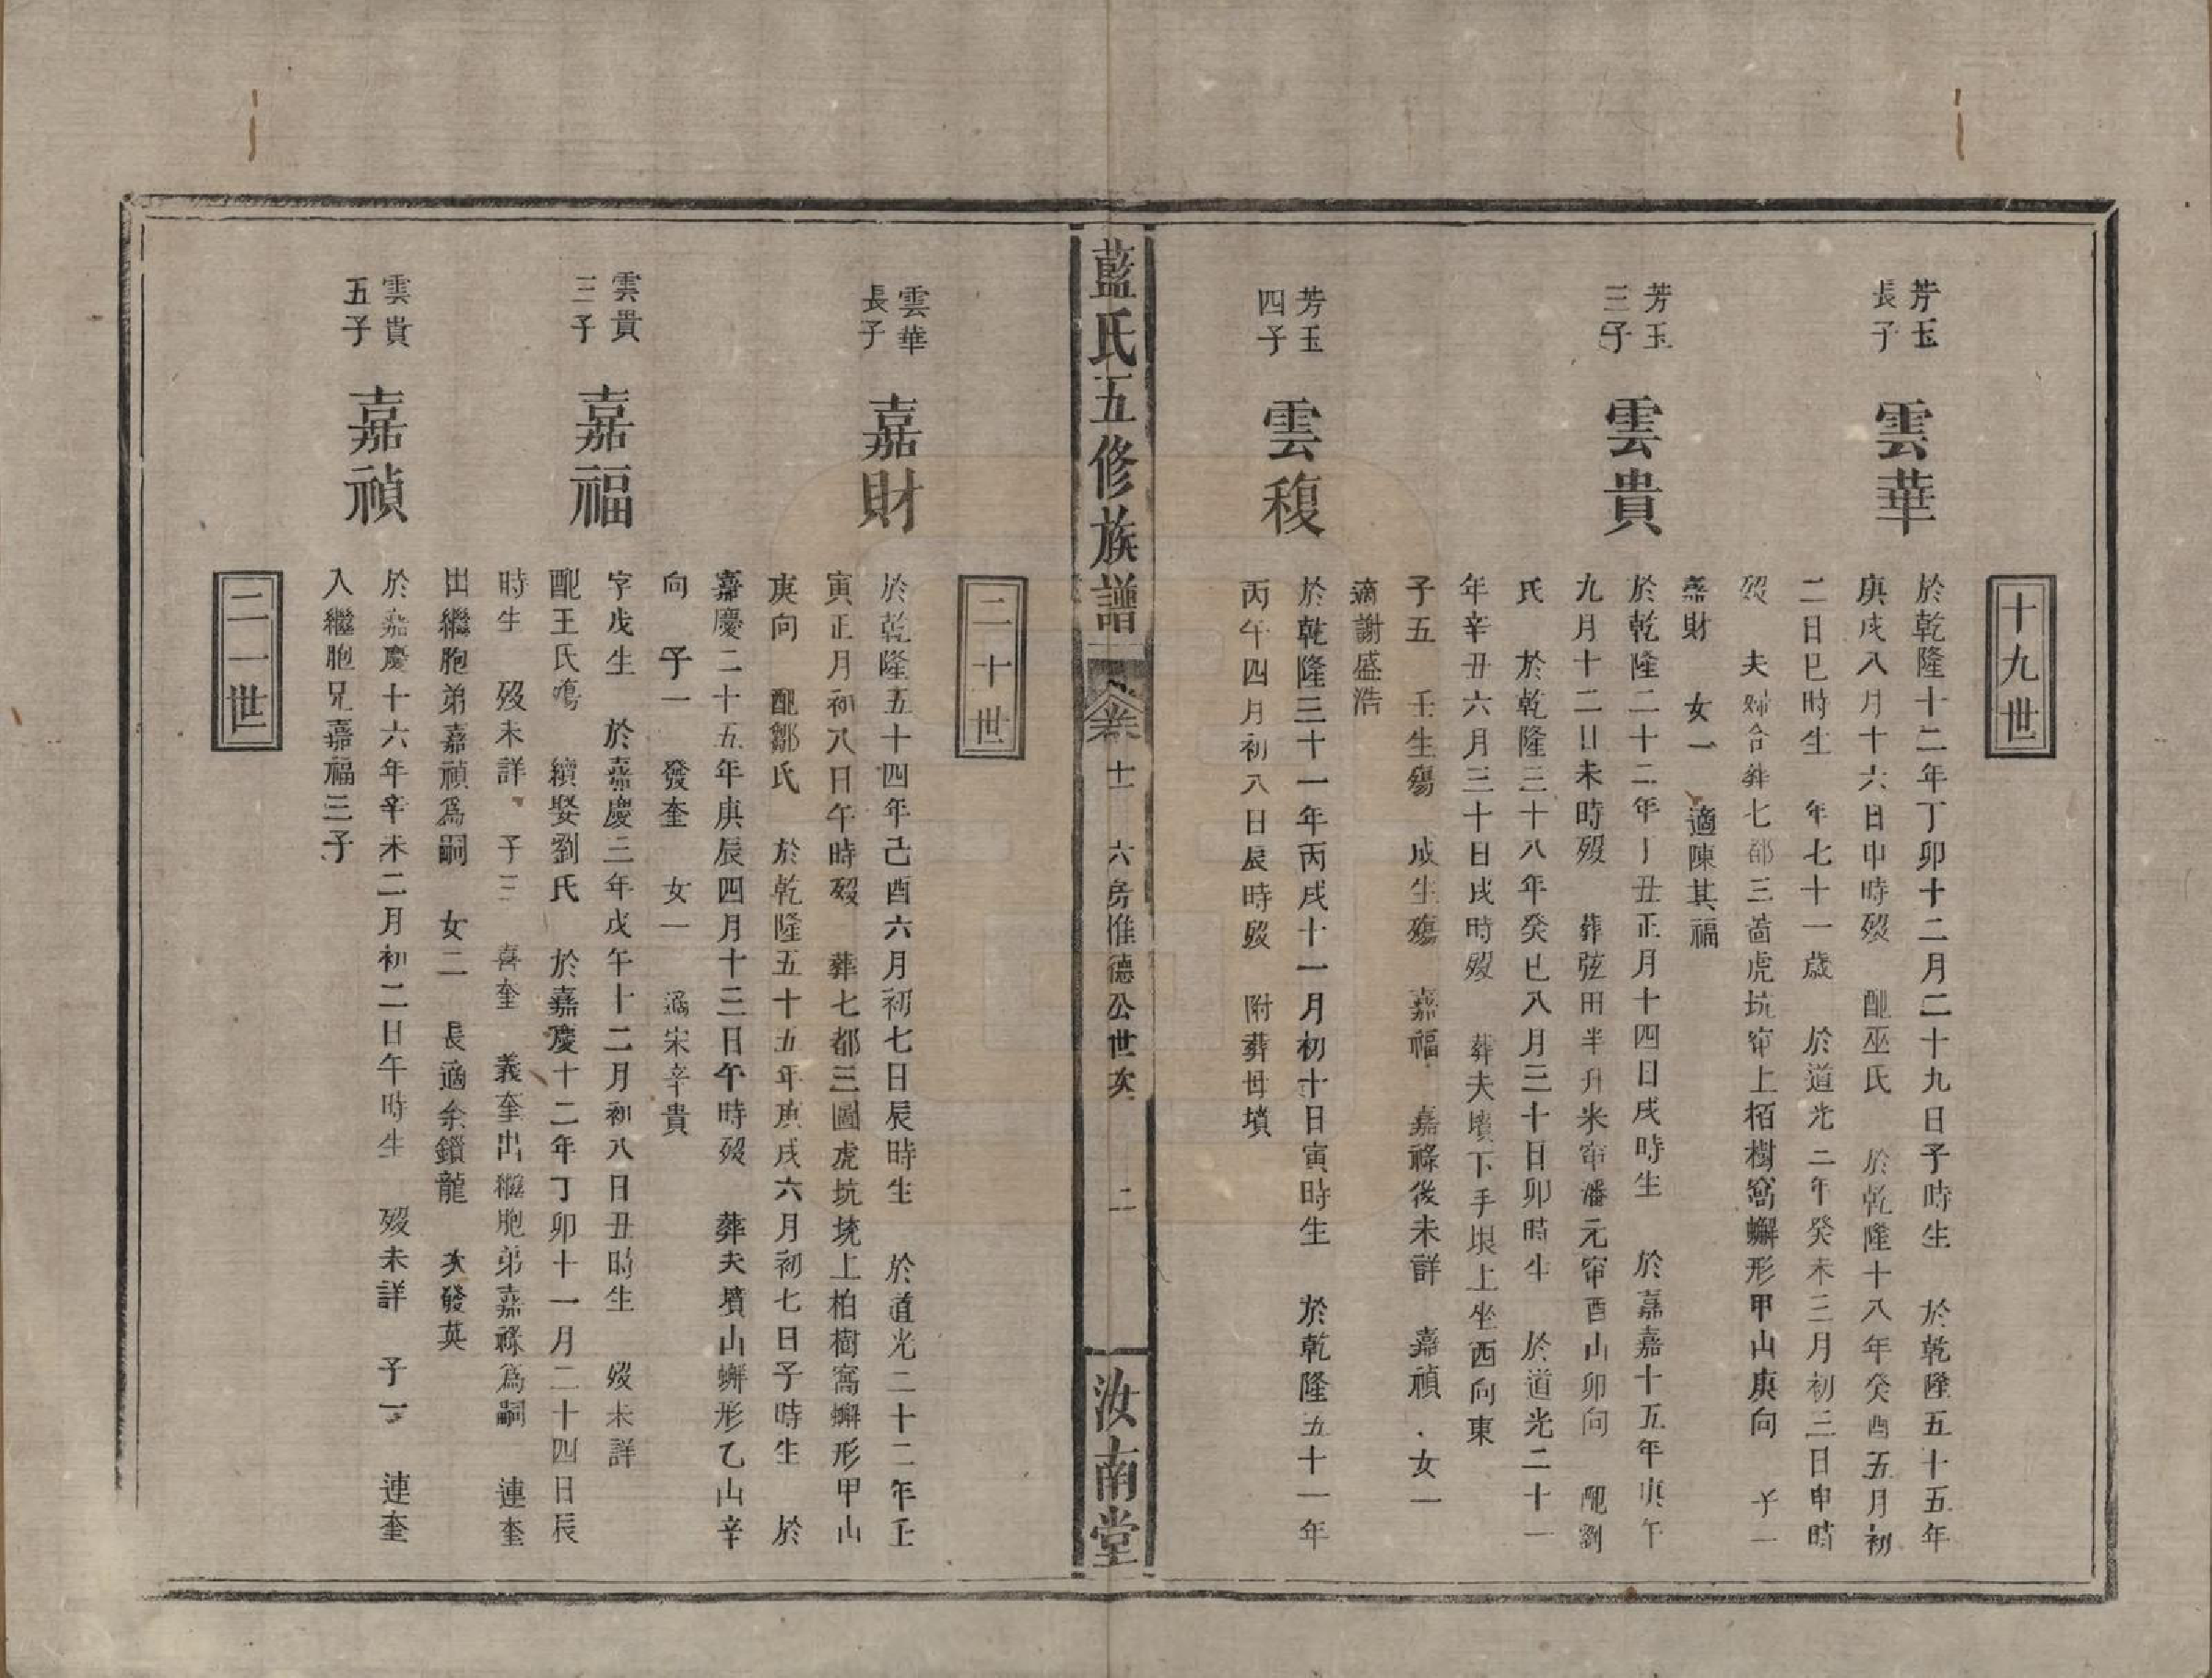 十九世
芳玉
長子
雲華
於乾隆十二年丁卯十二月二十九日子時生 於乾隆五十五年
庚戌八月十六日申時歿 配巫氏 於乾隆十八年癸酉五月初
二日巳時生 年七十一歲 於道光二年癸未三月初三日申時
歿 夫婦合葬七都三啚虎坑窜上栢樹窩蠏形甲山庚向 子一
嘉財 女一 適陳其福
芳玉
三子
雲貴
於乾隆二十二年丁丑正月十四日戌時生 於嘉嘉十五年庚午
九月十二日未時歿 葬弦田半升米窜潘元窜酉山卯向 配劉
氏 於乾隆三十八年癸巳八月三十日卯時生 於道光二十一
年辛丑六月三十日戌時歿 葬夫墳下手垠上坐西向東
子五 壬生殤 成生殤 嘉福 嘉祿後未詳 嘉禎 女一
適謝盛浩
芳玉
四子
雲複
於乾隆三十一年丙戌十一月初十日寅時生 於乾隆五十一年
丙午四月初八日辰時歿 附葬母墳
藍氏五修族譜
卷 十一 六房惟德公世次 二
汝南堂
二十世
雲華
長子
嘉財
於乾隆五十四年己酉六月初七日辰時生 於道光二十二年壬
寅正月初八日午時歿 葬七都三圖虎坑垅上柏樹窩蠏形甲山
庚向 配鄒氏 於乾隆五十五年庚戌六月初七日子時生 於
嘉慶二十五年庚辰四月十三日午時歿 葬夫墳山蠏形乙山辛
向 子一 發奎 女一 適宋辛貴
雲貴
三子
嘉福
字戊生 於嘉慶三年戊午十二月初八日丑時生 歿未詳
配王氏殤 續娶劉氏 於嘉慶十二年丁卯十一月二十四日辰
時生 歿未詳 子三 喜奎 義奎出繼胞弟嘉祿爲嗣 連奎
出繼胞弟嘉禎爲嗣 女二 長適余鎖龍 次發英
雲貴
五子
嘉禎
於嘉慶十六年辛未二月初二日午時生 歿未詳 子一 連奎
入繼胞兄嘉福三子
二一世